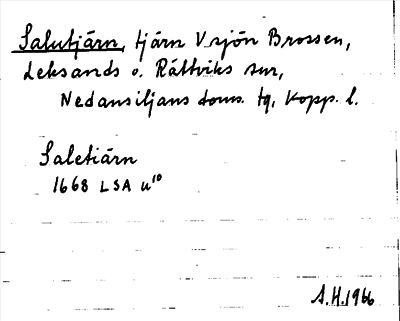 Salutjärn, tjärn V sjön Brossen,
Leksands o. Rättviks snr,
Nedansiljans doms. tg, Kopp. l.
Saletiärn
1668 LSA u10
A.H. 1966